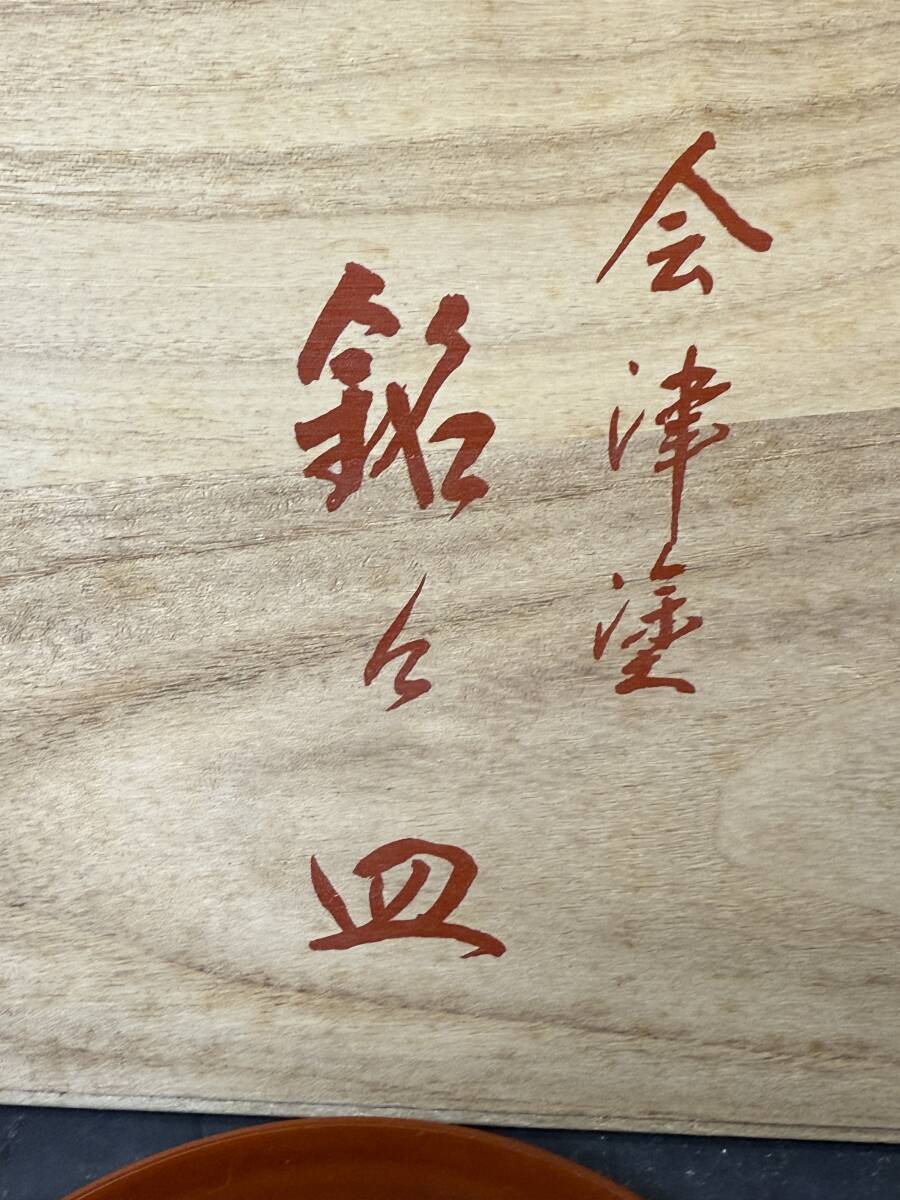 会津塗
銘々皿